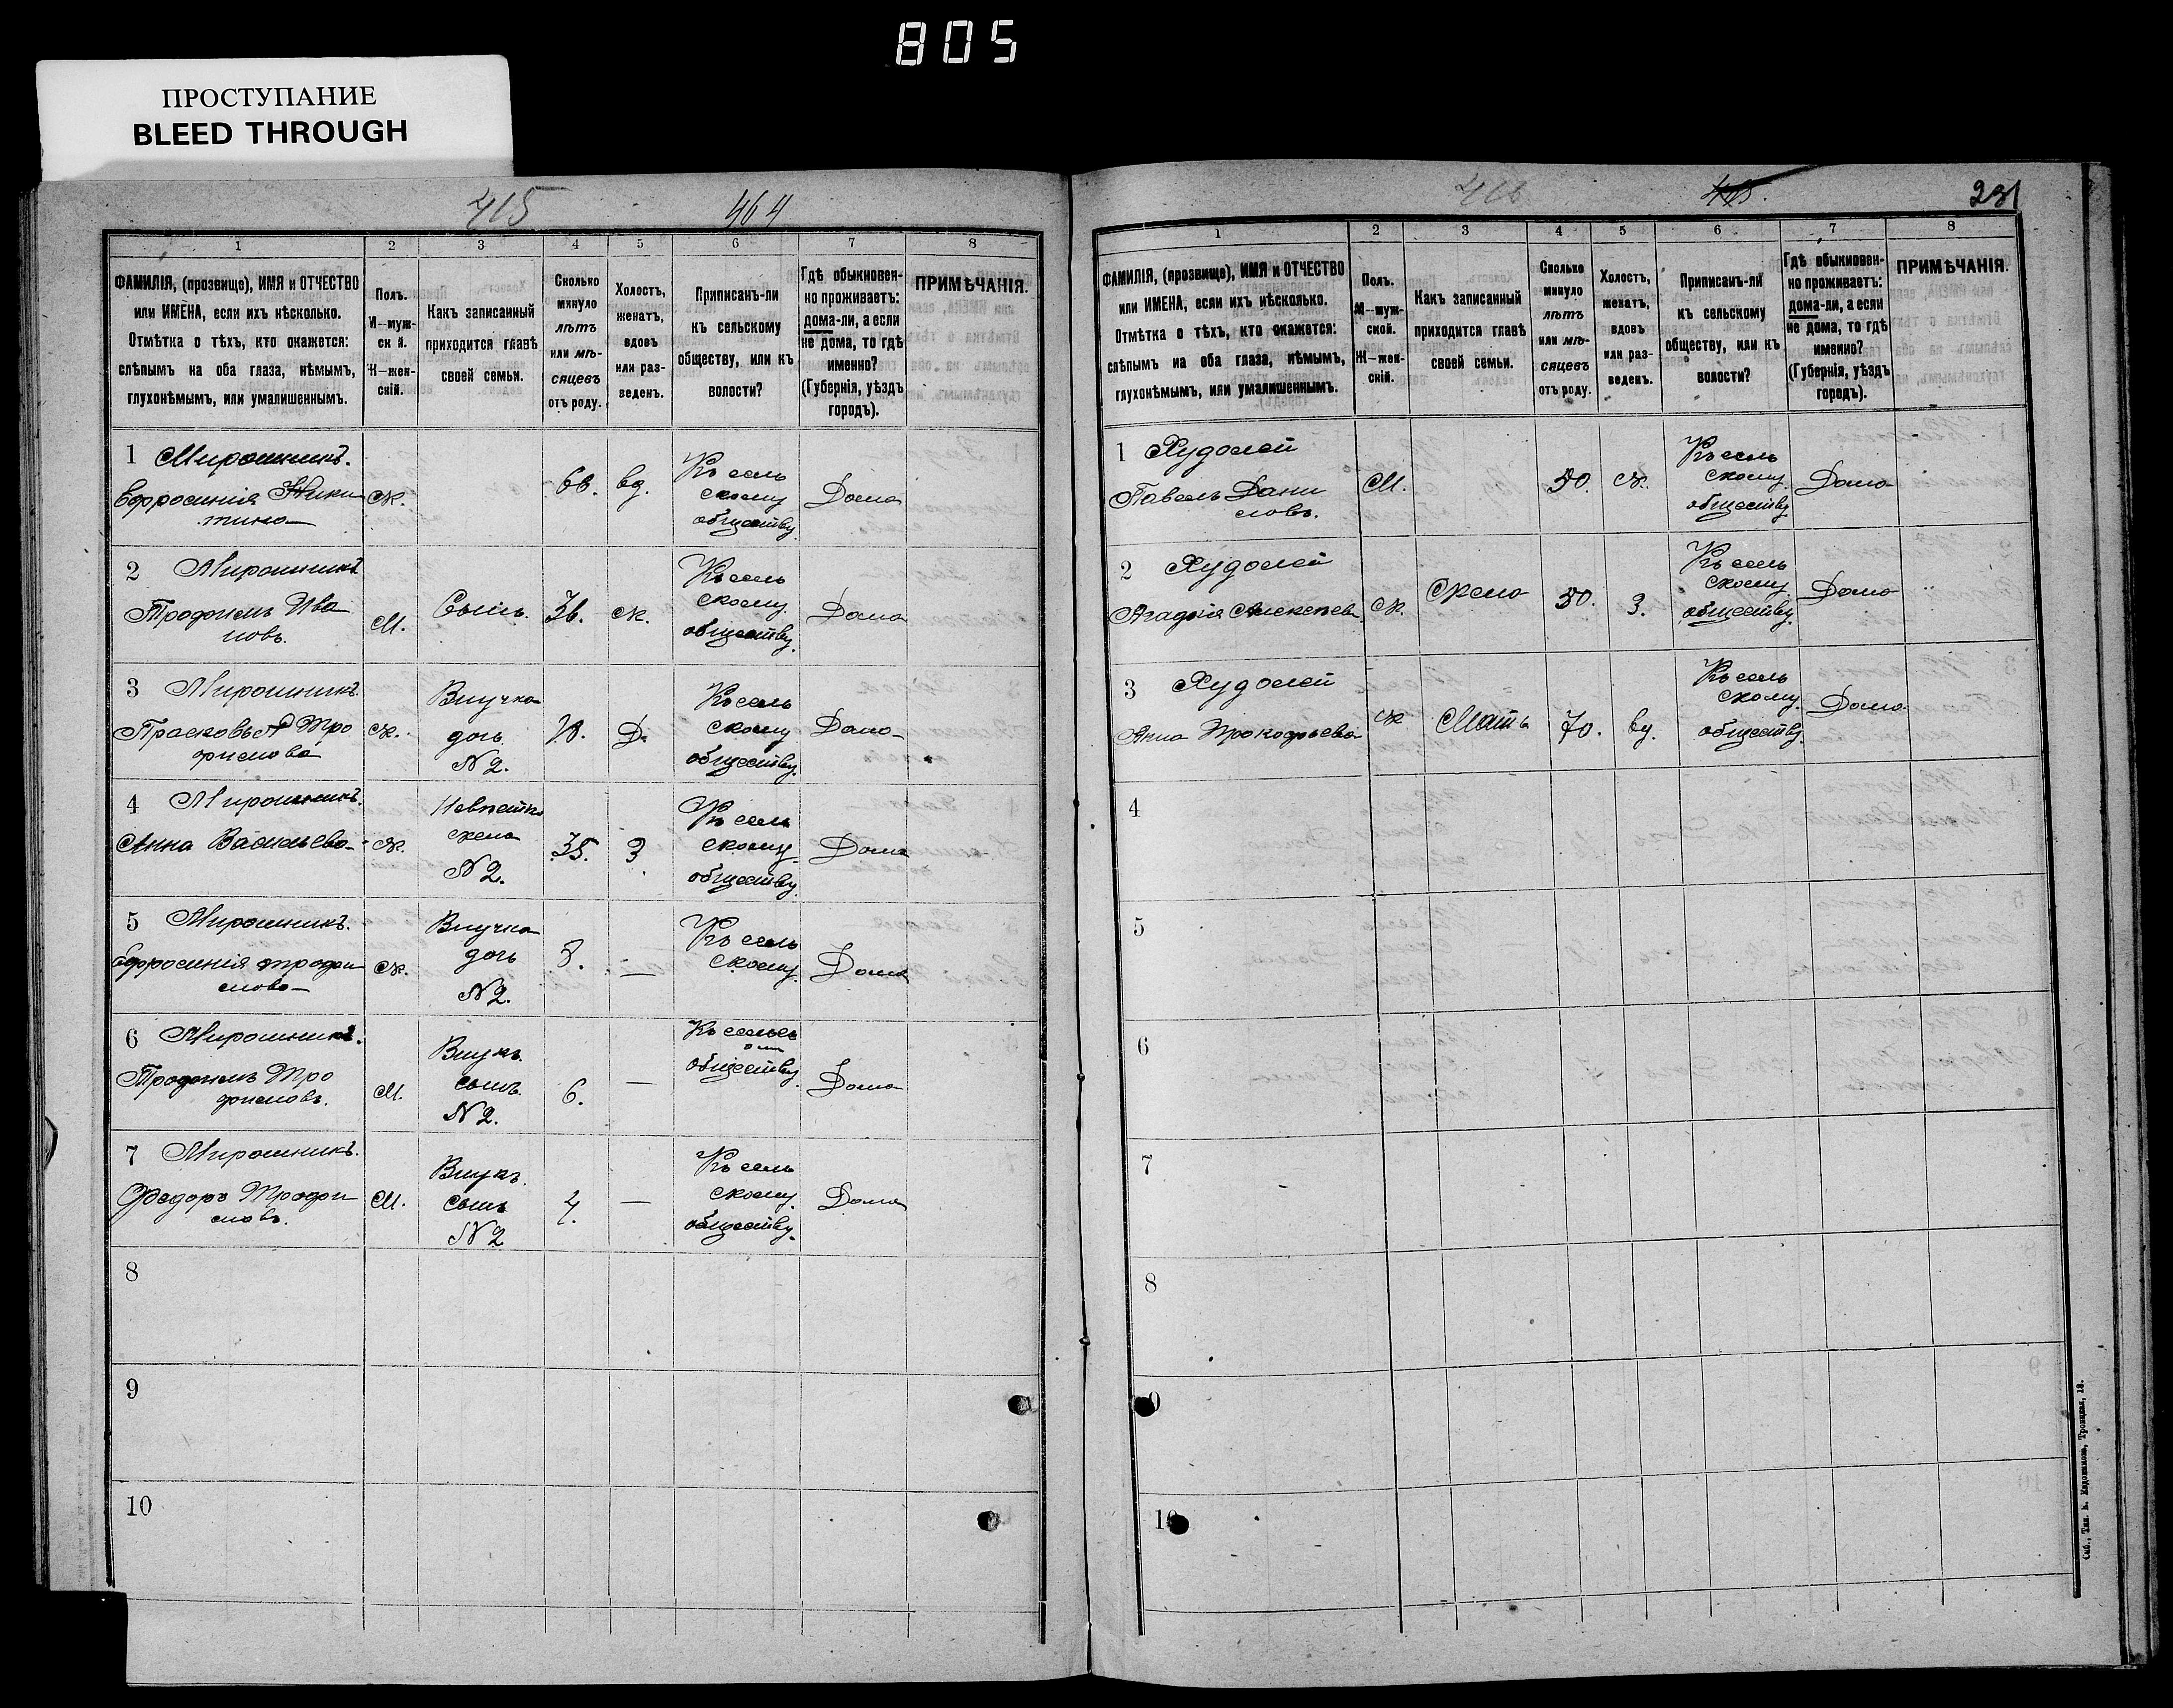 805
ПРОСТУПАНИЕ
BLEED THROUGH
415 464
1 2 3 4 5 6 7 8
ФАМИЛІЯ, (прозвище), ИМЯ и ОТЧЕСТВО
или ИМЕНА, если ихъ нѣсколько.
Отмѣтка о тѣхъ, кто окажется:
слѣпымъ на оба глаза, нѣмымъ,
глухонѣмымъ, или умалишеннымъ.
Полъ.
М—муж-
ск й.
Ж—жен-
скій.
Какъ записанный
приходится главѣ
своей семьи.
Сколько
минуло
лѣтъ
или мѣ-
сяцевъ
отъ роду.
Холостъ,
женатъ,
вдовъ
или раз-
веденъ.
Приписанъ-ли
къ сельскому
обществу, или къ
волости?
Гдѣ обыкновен-
но проживаетъ:
дома-ли, а если
не дома, то гдѣ
именно?
(Губернія, уѣздъ
городъ).
ПРИМѢЧАНІЯ.
1 Мирошникъ.
Ефросинія Ники
тина
Ж.
вд.
Къ сель
скому
обществу
Дома
2 Мирошникъ
Трофимъ Ива
новъ.
М.
Сынъ.
36.
Ж.
Къ сель
скому
обществу
Дома
3 Мирошникъ
Прасковья Тро
фимова
Ж.
Внучка
дочь
N 2.
Д.
Къ сель
скому
обществу
Дома
4 Мирошникъ.
Анна Васильева
Ж.
Невѣстка
жена
N 2.
35.
З.
Къ сель
скому
обществу
Дома
5 Мирошникъ.
Ефросинія Трофи
мова
Ж.
Внучка
дочь
N 2.
8.
—
Къ сель
скому
Дома
6 Мирошникъ.
Трофимъ Тро
фимовъ.
М.
Внукъ.
сынъ.
N 2.
6.
—
обществу
Дома
7 Мирошникъ.
Федоръ Трофи
мовъ.
М.
Внукъ.
сынъ
N 2
4.
—
Къ сель
скому
обществу.
Дома
8
9
10
416 231
1 2 3 4 5 6 7 8
ФАМИЛІЯ, (прозвище), ИМЯ и ОТЧЕСТВО
или ИМЕНА, если ихъ нѣсколько.
Отмѣтка о тѣхъ, кто окажется:
слѣпымъ на оба глаза, нѣмымъ,
глухонѣмымъ, или умалишеннымъ.
Полъ.
М—муж-
ской.
Ж—жен-
скій.
Какъ записанный
приходится главѣ
своей семьи.
Сколько
минуло
лѣтъ
или мѣ-
сяцевъ
отъ роду.
Холостъ,
женатъ,
вдовъ
или раз-
веденъ.
Приписанъ-ли
къ сельскому
обществу, или къ
волости?
Гдѣ обыкновен-
но проживаетъ:
дома-ли, а если
не дома, то гдѣ
именно?
(Губернія, уѣздъ
городъ).
ПРИМѢЧАНІЯ.
1 Худолей
Павелъ Дани
ловъ.
М.
50.
Ж.
Къ сель
скому
обществу
Дома
2 Худолей
Агафія Алексѣева
Ж.
Жена
50.
З.
Къ сель
скому
обществу.
Дома
3 Худолей
Анна Прокофьева
Ж
Мать
70.
вд.
Къ сель
скому
обществу.
Дома
4
5
6
7
8
9
10
Спб., Тип. Троицкая, 18.